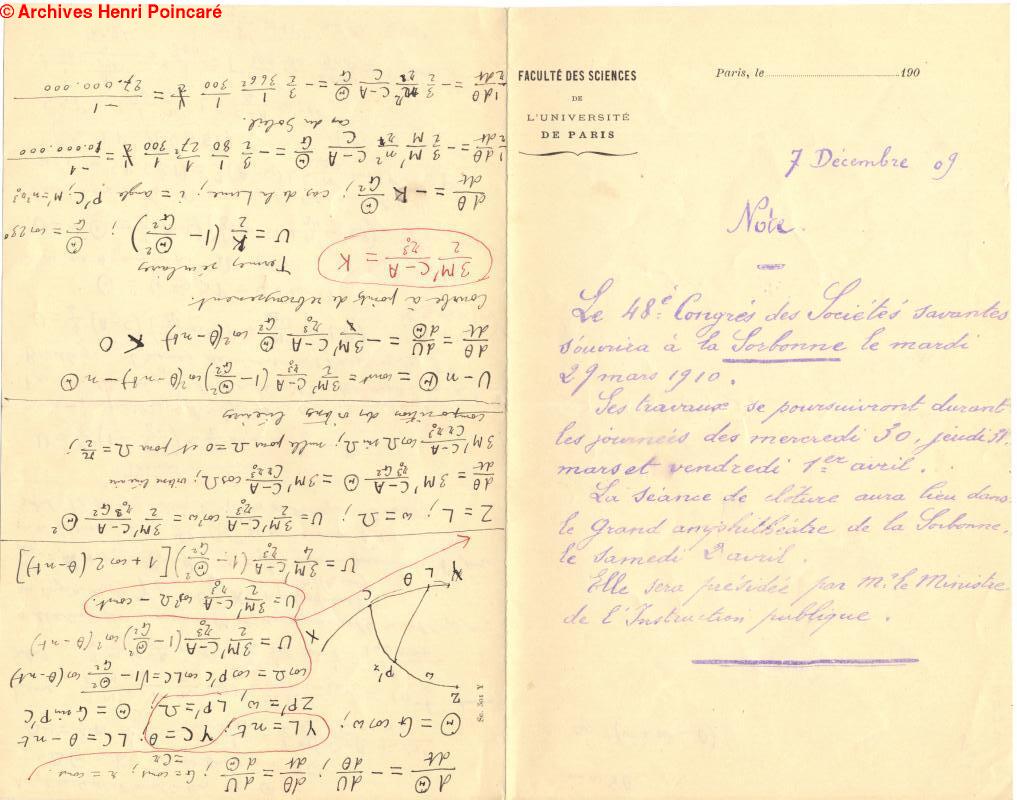 © Archives Henri Poincaré
FACULTÉ DES SCIENCES
DE
L'UNIVERSITÉ
DE PARIS
Paris, le 190
7 Décembre 09
Note.
Le 48e Congrès des Sociétés savantes
s'ouvrira à la Sorbonne le mardi
29 mars 1910.
Ses travaux se poursuivront durant
les journées des mercredi 30, jeudi 31
mars et vendredi 1er avril.
La séance de clôture aura lieu dans
le Grand amphithéâtre de la Sorbonne,
le samedi 2 avril.
Elle sera présidée par Mr le Ministre
de l'Instruction publique.
dΘ/dt = − dU/dθ ; dθ/dt = dU/dΘ ; G = const, r = const.
= Cr
Θ = G cos ω; YL = nt; YC = θ; LC = θ − nt
ZP' = ω, LP' = Ω; Θ = G sin P'C
cos Ω = cos P'C cos LC = √1 − Θ²/G² cos (θ − nt)
U = 3M'/2 C−A/r₀³ (1 − Θ²/G²) cos² (θ − nt)
U = 3M'/2 C−A/r₀³ cos² Ω − const.
U = 3M'/4 C−A/r₀³ (1 − Θ²/G²) [1 + cos 2 (θ − nt)]
Z
P'
ω
C
θ
L
Y
X
Sc. 301 Y
Z = L; ω = Ω; U = 3M'/2 C−A/r₀³ cos² ω = 3M'/2 C−A/r₀³G² Θ²
dθ/dt = 3M' C−A/r₀³G² Θ = 3M' C−A/Cr r₀³ cos Ω;
3M' C−A/Cr r₀³ cos Ω sin Ω; nulle pour Ω = 0 et pour Ω = π/2;
composition des vibr. linéaires
U − nΘ = const = 3M'/2 C−A/r₀³ (1 − Θ²/G²) cos² (θ − nt) − nΘ
dθ/dt = dU/dΘ = − 3M' C−A/r₀³ Θ/G² cos² (θ − nt) < 0
Courbe à points de rebroussement.
Termes séculaires
3M'/2 C−A/r₀³ = K
U = K/2 (1 − Θ²/G²) ; Θ/G = cos 23°
dθ/dt = − K Θ/G²; cas de la Lune; i = angle P'C; M' = n²r₀³
1/r dθ/dt = − 3/2 M'/M n²/r² C−A/C Θ/G = − 3/2 1/80 1/27² 1/300 = −1/10.000.000
cas du Soleil.
1/r dθ/dt = − 3/2 n²/r² C−A/C Θ/G = − 3/2 1/366² 1/300 = −1/27.000.000